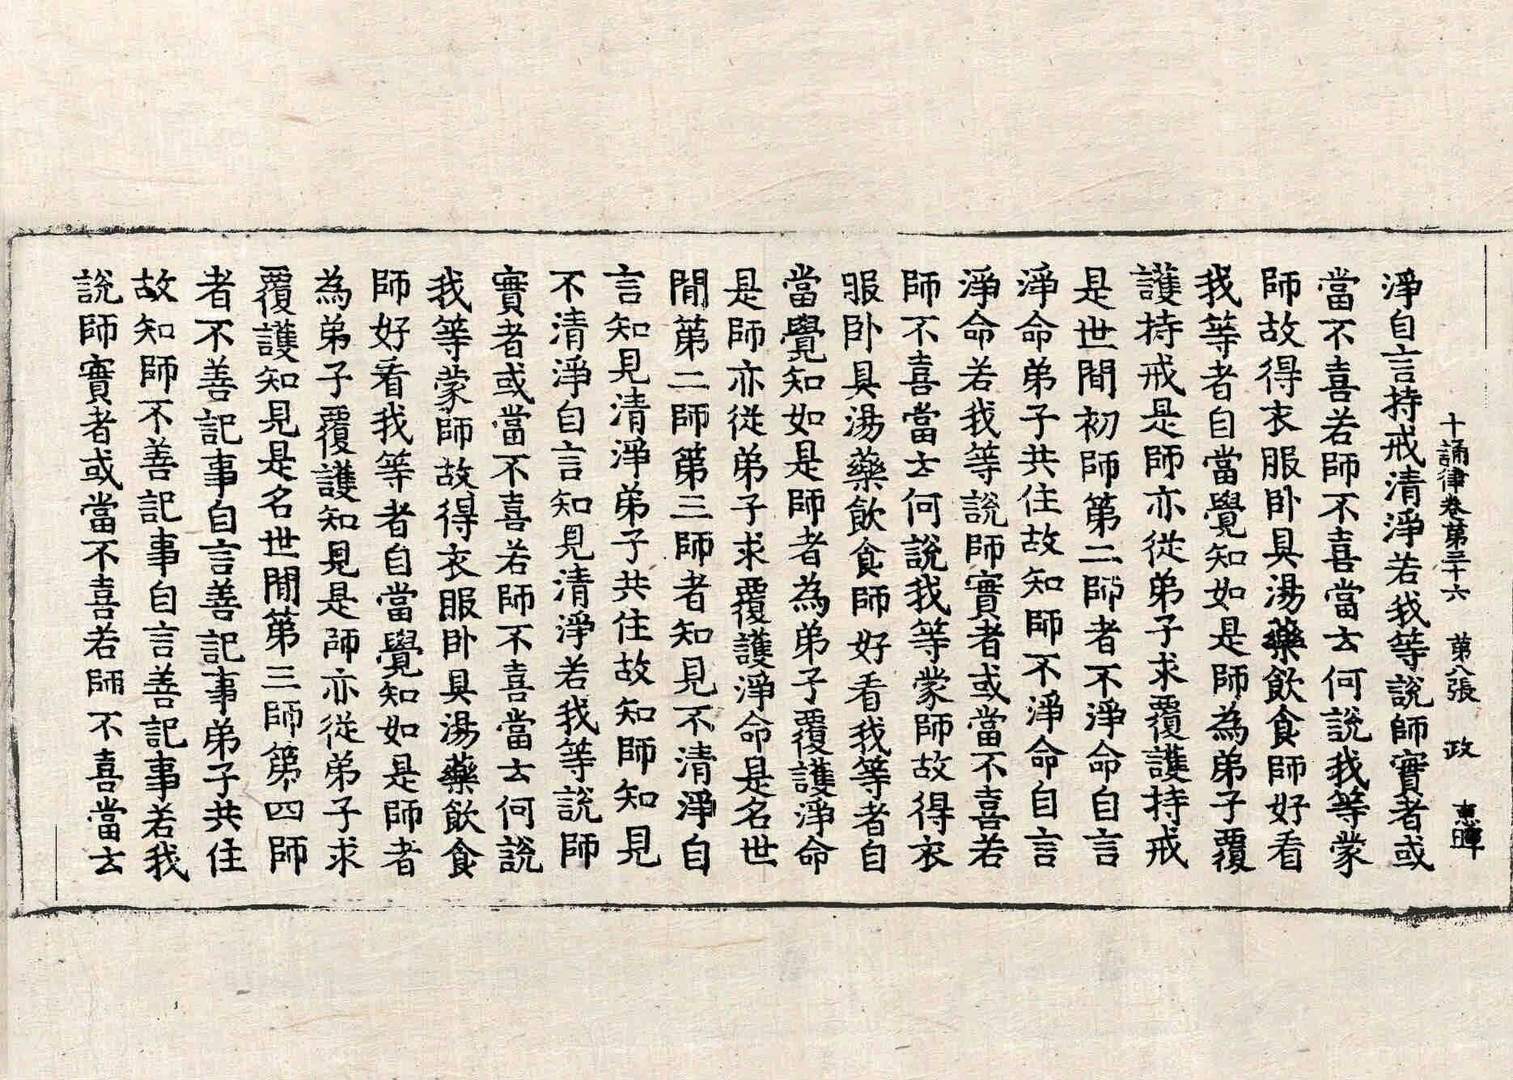 十誦律卷第三十六 第八張 政 惠暉
淨自言持戒清淨若我等說師實者或
當不喜若師不喜當云何說我等蒙
師故得衣服卧具湯藥飲食師好看
我等者自當覺知如是師為弟子覆
護持戒是師亦從弟子求覆護持戒
是世間初師第二師者不淨命自言
淨命弟子共住故知師不淨命自言
淨命若我等說師實者或當不喜若
師不喜當云何說我等蒙師故得衣
服卧具湯藥飲食師好看我等者自
當覺知如是師者為弟子覆護淨命
是師亦從弟子求覆護淨命是名世
間第二師第三師者知見不清淨自
言知見清淨弟子共住故知師知見
不清淨自言知見清淨若我等說師
實者或當不喜若師不喜當云何說
我等蒙師故得衣服卧具湯藥飲食
師好看我等者自當覺知如是師者
為弟子覆護知見是師亦從弟子求
覆護知見是名世間第三師第四師
者不善記事自言善記事弟子共住
故知師不善記事自言善記事若我
說師實者或當不喜若師不喜當云